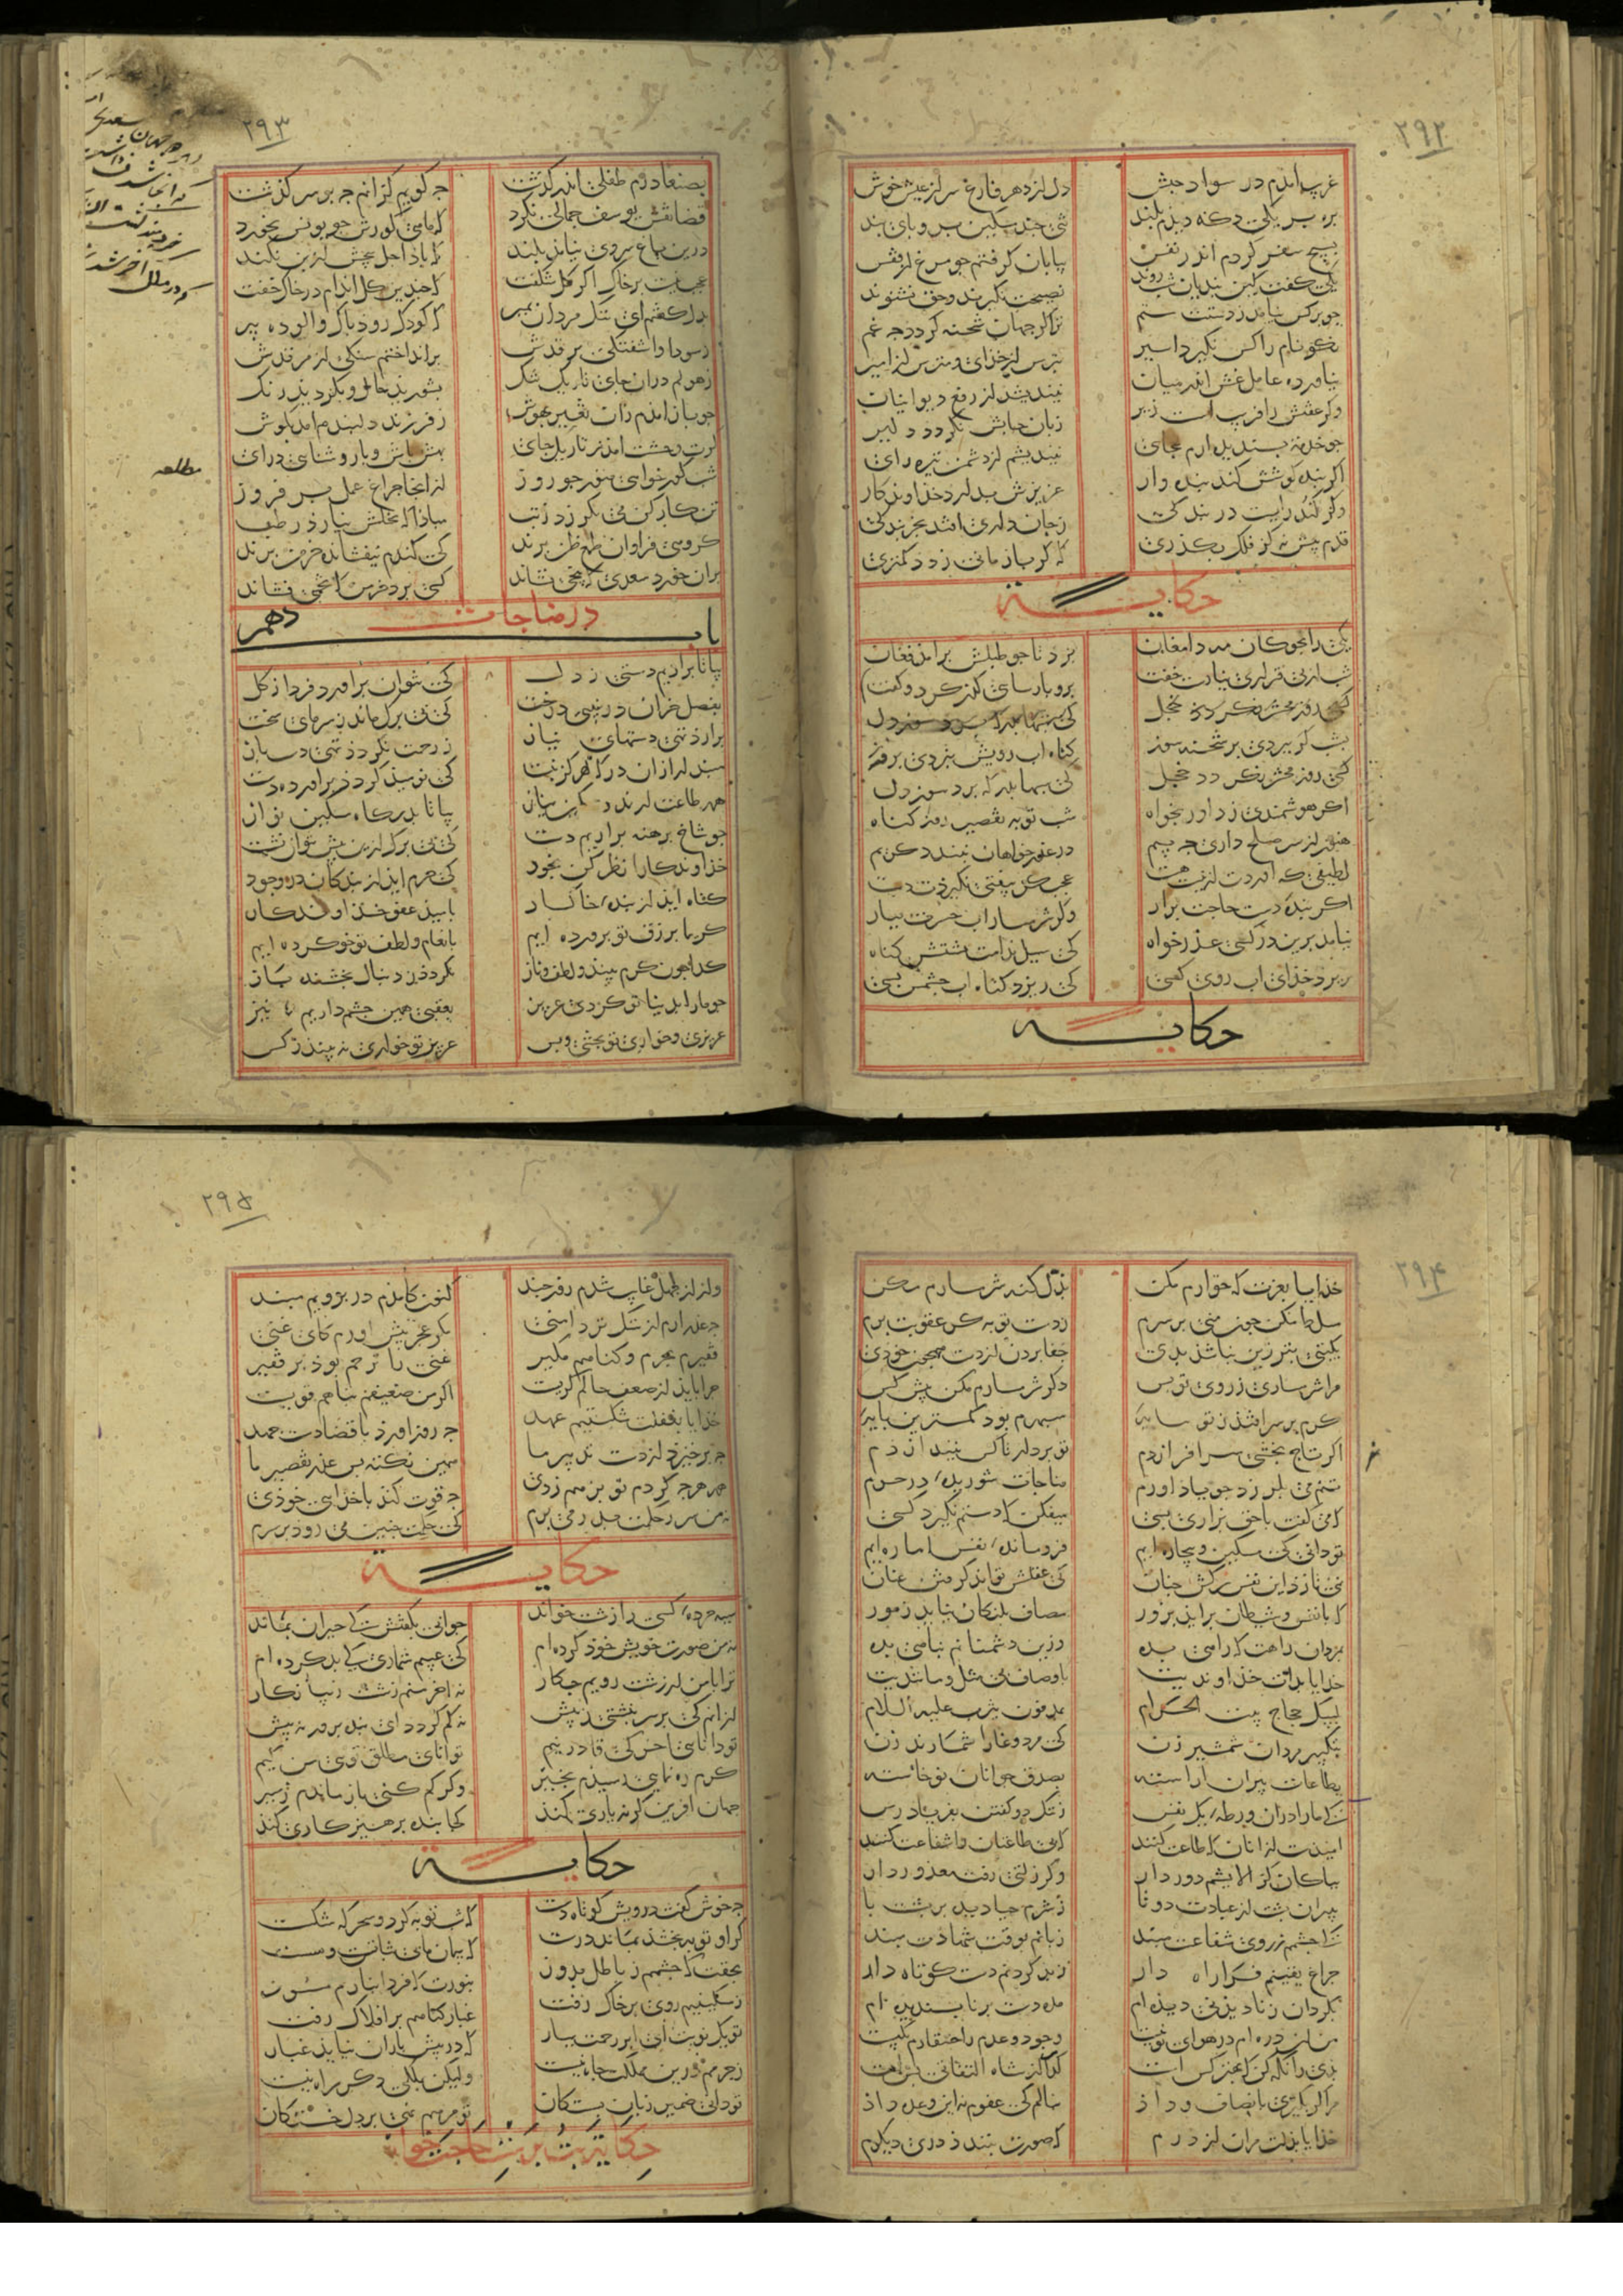 ۲۹۲
غریب آمدم در سواد حبش
دل از دهر فارغ سر از عیش خوش
بره بر یکی دکه دیدم بلند
تنی چند مسکین برو پای بند
بسیج سفر کردم اندر نفس
بیابان گرفتم چو مرغ از قفس
یکی گفت کین بندیان شب روند
نصیحت نگیرند و حق نشنوند
چو بر کس نیامد ز دستت ستم
ترا گر جهان شحنه گیرد چه غم
نکو نام را کس نگیرد اسیر
بترس از خدای و مترس از امیر
نیاورده عامل غش اندر میان
نیندیشد از رفع دیوانیان
وگر عفتش را فریب است زیر
زبان حسابش نگردد دلیر
چو خدمت پسندیده آرم بجای
نیندیشم از دشمن تیره رای
اگر بنده کوشش کند بنده وار
عزیزش بدارد خداوندگار
وگر کند رایست در بندگی
ز جان داری افتد بخربندگی
قدم پیش نه کز ملک بگذری
که گر باز مانی ز دد کمتری
حکایت
یکی را بچوکان مه دامغان
بزد تا چو طبلش برآمد فغان
شب از بی قراری نیارست خفت
برو پارسائی گذر کرد و گفت
بشب گر ببردی بر شحنه سوز
گناه آب رویش نبردی بروز
کسی روز محشر نگردد خجل
که شبها بدرگه برد سوز دل
اگر هوشمندی ز داور بخواه
شب توبه تقصیر روز گناه
هنوز از سر صلح داری چه بیم
در عذر خواهان نبندد کریم
لطیفی که آوردت از نیست هست
عجب گر بیفتی نگیردت دست
اگر بنده دست حاجت برآر
وگر شرمسار آب حسرت ببار
نیامد برین در کسی عذر خواه
که سیل ندامت نشستش گناه
نریزد خدای آب روی کسی
که ریزد گناه آب چشمش بسی
حکایت
۲۹۳
بصنعا درم طفلی اندر گذشت
چه گویم کزانم چه بر سر گذشت
قضا نقش یوسف جمالی نکرد
که ماهی گورش چو یونس نخورد
درین باغ سروی نیامد بلند
که باد اجل بیخش از بن نکند
عجب نیست بر خاک اگر گل شکفت
که چندین گل اندام در خاک خفت
بدل گفتم ای ننگ مردان بمیر
که کودک رود پاک و آلوده پیر
ز سودا و آشفتگی بر قدش
برانداختم سنگی از مرقدش
ز هولم دران جای تاریک تنگ
بشورید حال و بگردید رنگ
چو باز آمدم زان تغیر بهوش
ز فرزند دلبندم آمد بگوش
گرت وحشت آمد ز تاریک جای
بهش باش و با روشنائی درآی
شب گور خواهی منور چو روز
از اینجا چراغ عمل بر فروز
تن کارکن می بلرزد ز تب
مبادا که نخلش نیارد رطب
گروهی فراوان طمع ظن برند
که گندم نیفشانده خرمن برند
بر آن خورد سعدی که بیخی نشاند
کسی برد خرمن که تخمی فشاند
باب دهم در مناجات
بیا تا برآریم دستی ز دل
که نتوان برآورد فردا ز گل
بفصل خزان در نبینی درخت
که بی برگ ماند ز سرمای سخت
برآرد تهی دستهای نیاز
ز رحمت نگردد تهی دست باز
مپندار ازان در که هرگز نبست
که نومید گردد برآورده دست
همه طاعت آرند و مسکین نیاز
بیا تا بدرگاه مسکین نواز
چو شاخ برهنه برآریم دست
که بی برگ ازین بیش نتوان نشست
خداوندگارا نظر کن بجود
که جرم آید از بندگان در وجود
گناه آید از بنده خاکسار
بامید عفو خداوندگار
کریما برزق تو پرورده ایم
بانعام و لطف تو خو کرده ایم
گدا چون کرم بیند و لطف و ناز
نگردد ز دنبال بخشنده باز
چو ما را بدنیا تو کردی عزیز
بعقبی همین چشم داریم نیز
عزیزی و خواری تو بخشی و بس
عزیز تو خواری نه بیند ز کس
مطلعه
۲۹۴
خدایا بعزت که خوارم مکن
بذل گنه شرمسارم مکن
مسلط مکن چون منی بر سرم
ز دست تو به گر عقوبت برم
بگیتی بتر زین نباشد بدی
جفا بردن از دست همچون خودی
مرا شرمساری ز روی تو بس
دگر شرمسارم مکن پیش کس
گرم بر سر افتد ز تو سایه
سپهرم بود کمترین پایه
اگر تاج بخشی سر افرازدم
تو بردار تا کس نیندازدم
تنم می بلرزد چو یاد آورم
مناجات شوریده در حرم
که می گفت با حق بزاری بسی
میفکن که دستم نگیرد کسی
تو دانی که مسکین و بیچاره ایم
فرو مانده نفس اماره ایم
نمی تازد این نفس سرکش چنان
که عقلش تواند گرفتن عنان
که با نفس و شیطان برآید بزور
مصاف پلنگان نیاید ز مور
بمردان راهت که راهی بده
وزین دشمنانم پناهی بده
خدایا بذات خداوندیت
باوصاف بی مثل و مانندیت
بلبیک حجاج بیت الحرام
بمدفون یثرب علیه السلام
بتکبیر مردان شمشیر زن
که مرد وغا را شمارند زن
بطاعات پیران آراسته
بصدق جوانان نو خاسته
که ما را دران ورطه یک نفس
ز ننگ دو گفتن بفریاد رس
امیدست از آنان که طاعت کنند
که بی طاعتان را شفاعت کنند
بپاکان کز آلایشم دور دار
وگر زلتی رفت معذور دار
بپیران پشت از عبادت دوتا
ز شرم گنه دیده بر پشت پا
که چشمم ز روی سعادت مبند
زبانم بوقت شهادت مبند
چراغ یقینم فرا راه دار
ز بد کردنم دست کوتاه دار
بگردان ز نادیدنی دیده ام
مده دست بر ناپسندیده ام
من آن ذره ام در هوای تو نیست
وجود و عدم در احتقارم یکیست
بدی را نگه کن که بهتر کس است
گدا را ز شاه التفاتی بس است
مرا گر بگیری بانصاف و داد
بنالم که عفوم نه این وعده داد
خدایا بذلت مران از درم
که صورت نبندد دری دیگرم
۲۹۵
ور از جهل غایب شدم روز چند
کنون کامدم در برویم مبند
چه عذر آرم از ننگ تر دامنی
مگر عجز پیش آورم کای غنی
فقیرم بجرم و گناهم مگیر
غنی را ترحم بود بر فقیر
چرا باید از ضعف حالم گریست
اگر من ضعیفم پناهم قویست
خدایا بغفلت شکستیم عهد
چه زور آورد با قضا دست جهد
چه برخیزد از دست تدبیر ما
همین نکته بس عذر تقصیر ما
همه هرچه کردم تو برهم زدی
چه قوت کند با خدای خودی
نه من سر ز حکمت بدر می برم
که حکمت چنین می رود بر سرم
حکایت
سیه چرده کسی را زشت خواند
جوابی بگفتش که حیران بماند
نه من صورت خویش خود کرده ام
که عیبم شماری که بد کرده ام
ترا با من ار زشت رویم چکار
نه آخر منم زشت و زیبا نگار
از آنم که بر سر نبشتی ز پیش
نه کم گردد ای بنده پرور نه بیش
تو دانایی آخر که قادر نیم
توانای مطلق توئی من کیم
گرم ره نمایی رسیدم بخیر
وگر گم کنی باز ماندم ز سیر
جهان آفرین گر نه یاری کند
کجا بنده پرهیزگاری کند
حکایت
چه خوش گفت درویش کوتاه دست
که شب توبه کرد و سحرگه شکست
گر او توبه بخشد بماند درست
که پیمان ما بی ثباتست و سست
بحقت که چشمم ز باطل بدوز
بنورت که فردا بنارم مسوز
ز مسکینیم روی بر خاک رفت
غبار گناهم بر افلاک رفت
تو یک نوبت ای ابر رحمت ببار
که در پیش باران نپاید غبار
ز جرمم درین مملکت جاه نیست
ولیکن بملکی دگر راه نیست
تو دانی ضمیر زبان بستگان
تو مرهم نهی بر دل خستگان
حکایت بت پرست حاجت خواه